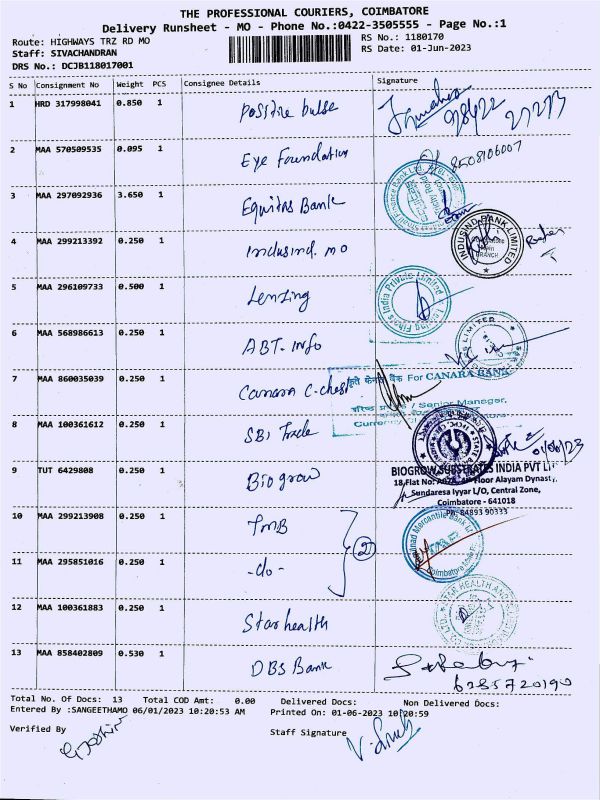 THE PROFESSIONAL COURIERS, COIMBATORE
Delivery Runsheet - MO - Phone No.:0422-3505555 - Page No.:1
Route: HIGHWAYS TRZ RD MO
RS No.: 1180170
Staff: SIVACHANDRAN
RS Date: 01-Jun-2023
DRS No.: DCJB118017001
S No Consignment No Weight PCS Consignee Details Signature
1 HRD 317998041 0.850 1 Positive pulse
2 MAA 570509535 0.095 1 Eye Foundation 8508106007
3 MAA 297092936 3.650 1 Equitas Bank
4 MAA 299213392 0.250 1 Indusind. mo
INDUSIND BANK LIMITED
BRANCH
5 MAA 296109733 0.500 1 Lenzing
Lenzing Fibers India Private Limited
6 MAA 568986613 0.250 1 ABT-info
LIMITED
7 MAA 860035039 0.250 1 Canara C-chest
For CANARA BANK
/ Senior Manager,
8 MAA 100361612 0.250 1 SBI Trade
01/06/23
9 TUT 6429808 0.250 1 Biogrow
BIOGROW SUBSTRATES INDIA PVT LT
18 Flat No: Floor Alayam Dynasty,
Sundaresa Iyyar L/O, Central Zone,
Coimbatore - 641018
Ph: 84893 90333
10 MAA 299213908 0.250 1 TMB
2
Mercantile Bank
Coimbatore
11 MAA 295851016 0.250 1 -do-
12 MAA 100361883 0.250 1 Star health
STAR HEALTH AND
13 MAA 858402809 0.530 1 DBS Bank
6285720190
Total No. Of Docs: 13 Total COD Amt: 0.00 Delivered Docs: Non Delivered Docs:
Entered By :SANGEETHAMO 06/01/2023 10:20:53 AM Printed On: 01-06-2023 10:20:59
Verified By
Staff Signature